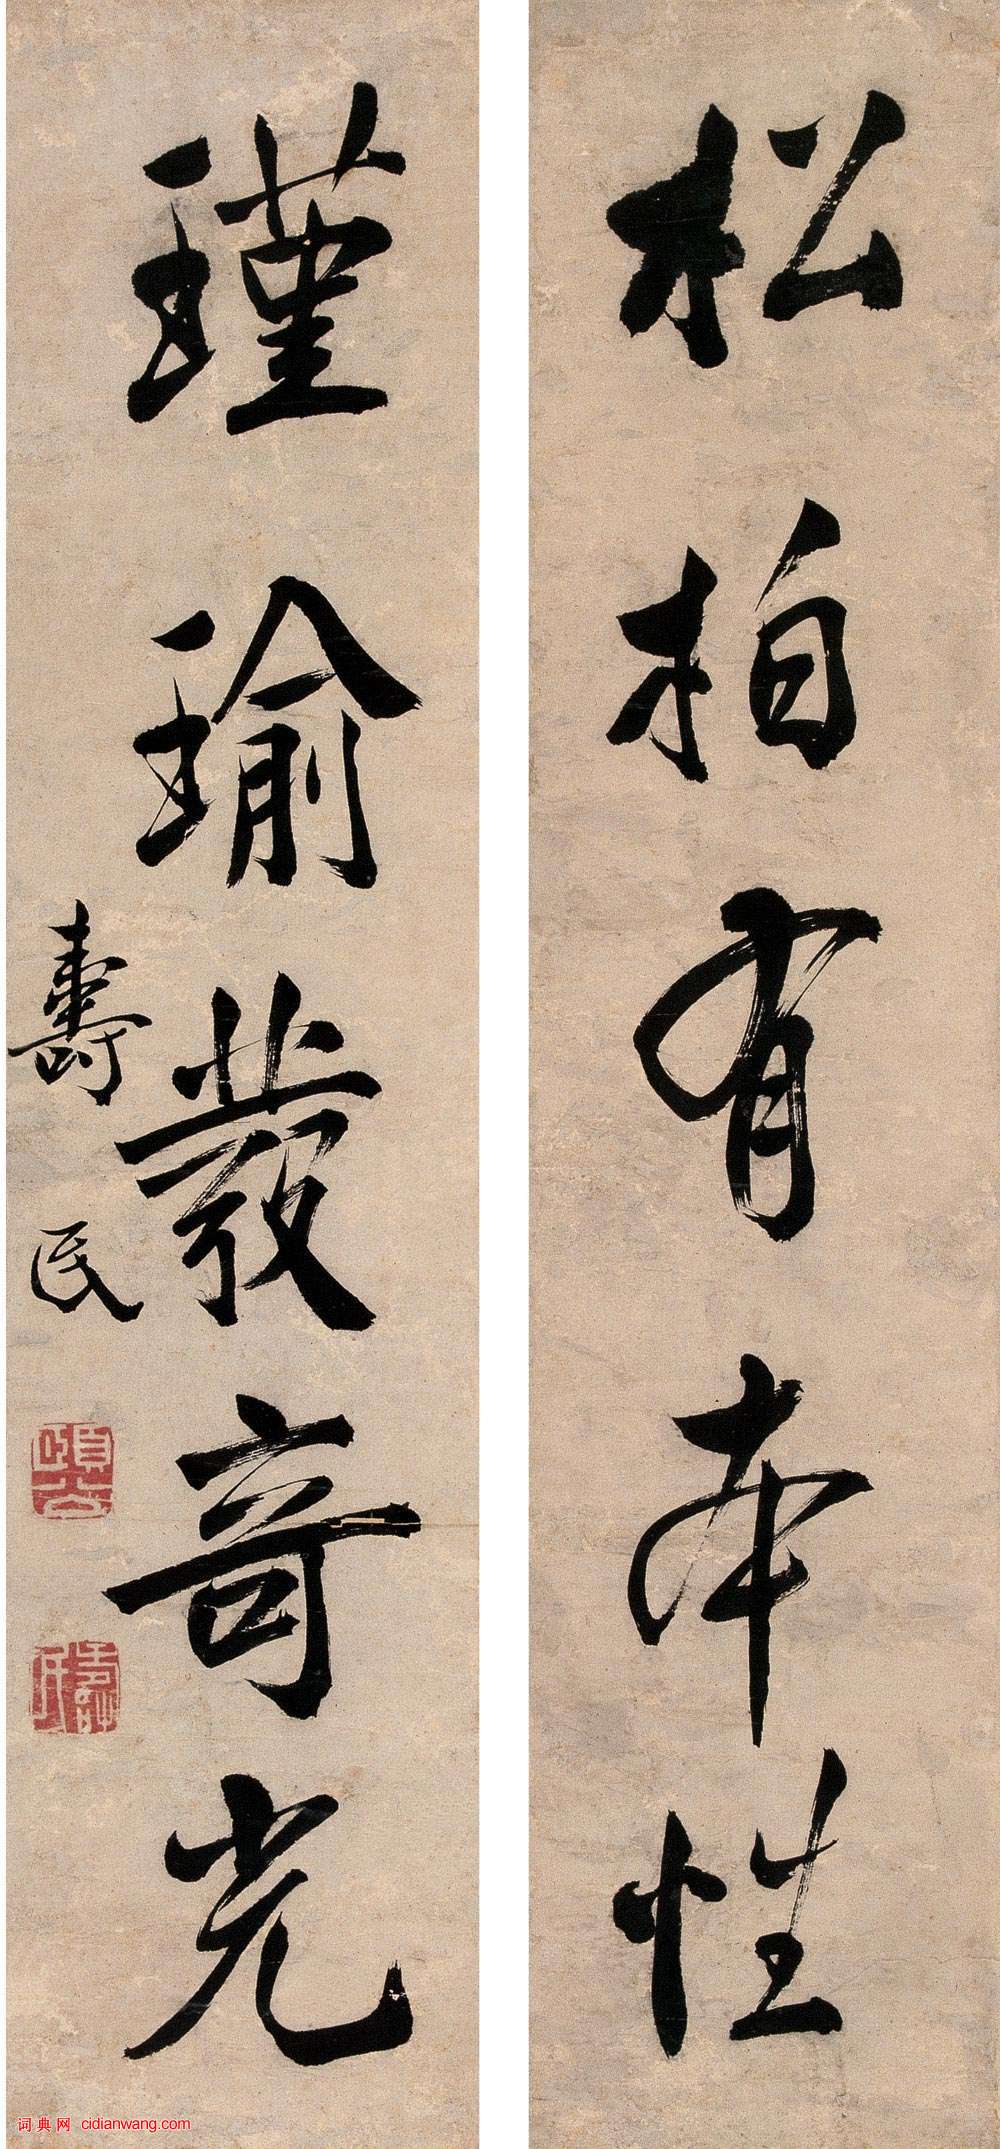 松柏有本性
瑾瑜發奇光
壽民
詞典网 cidianwang.com